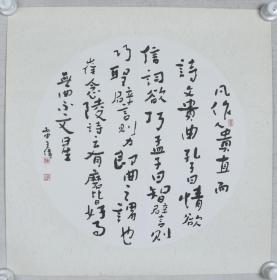 凡作人貴直而
詩文貴曲孔子曰情欲
信詞欲巧孟子曰智譬則
巧聖譬則力即曲之謂也
崔念陵詩云有磨皆好事
無曲不文星